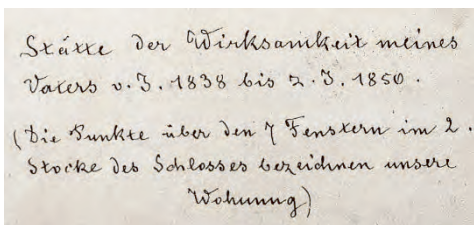 Stätte der Wirksamkeit meines
Vaters v. J. 1838 bis z. J. 1850.
(Die Punkte über den 7 Fenstern im 2.
Stocke des Schlosses bezeichnen unsere
Wohnung)